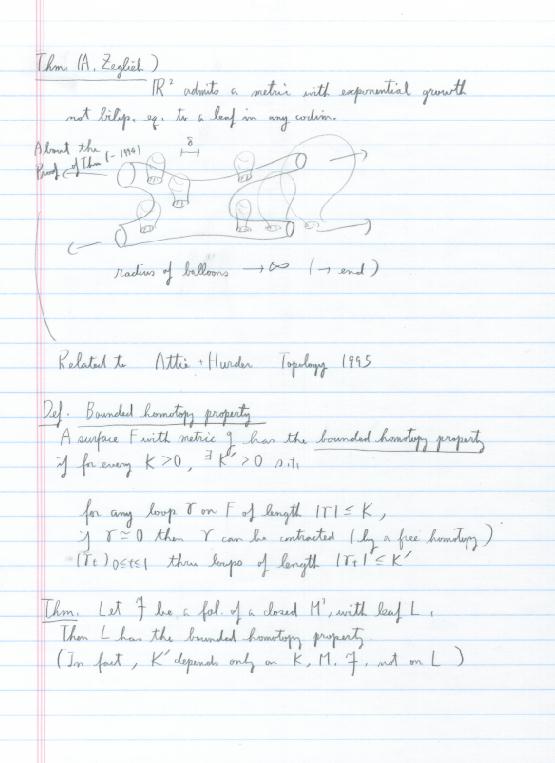 Thm. (A. Zeghib)
ℝ² admits a metric with exponential growth
not bilip. eq. to a leaf in any codim.
About the
Proof of Thm (~1994)
δ
radius of balloons → ∞ (→ end)
Related to Attie + Hurder Topology 1995
Def. Bounded homotopy property
A surface F with metric g has the bounded homotopy property
if for every K > 0, ∃ K' > 0 s.t.
for any loop γ on F of length |γ| ≤ K,
if γ ≃ 0 then γ can be contracted (by a free homotopy)
(γt) 0≤t≤1 thru loops of length |γt| ≤ K'
Thm. Let ℱ be a fol. of a closed M³, with leaf L.
Then L has the bounded homotopy property.
(In fact, K' depends only on K, M, ℱ, not on L)